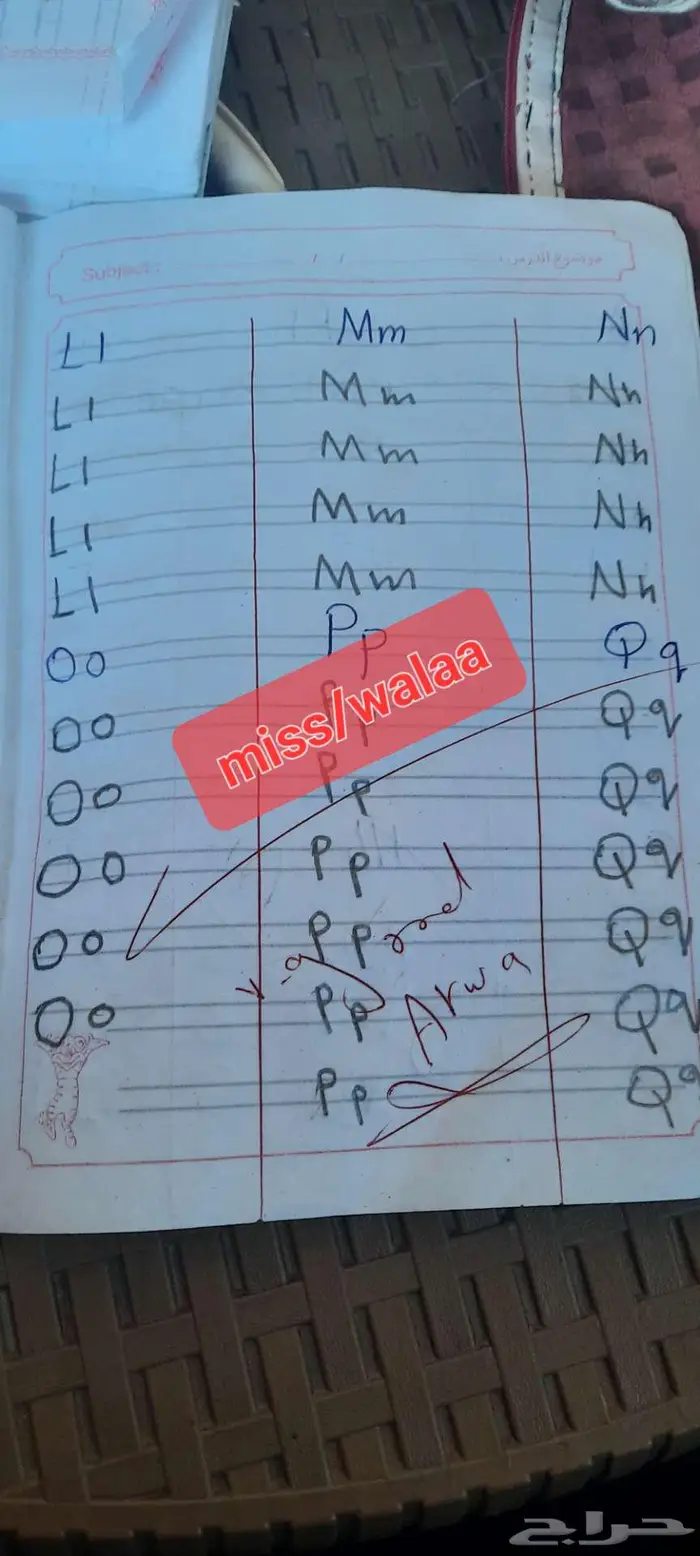 Subject: / / موضوع الدرس:
Ll Mm Nn
Ll Mm Nn
Ll Mm Nn
Ll Mm Nn
Ll Mm Nn
Oo Pp Qq
Oo Pp Qq
Oo Pp Qq
Oo Pp Qq
Oo Pp Qq
Oo Pp Qq
Pp Qq
miss/walaa
Arwa
حراج